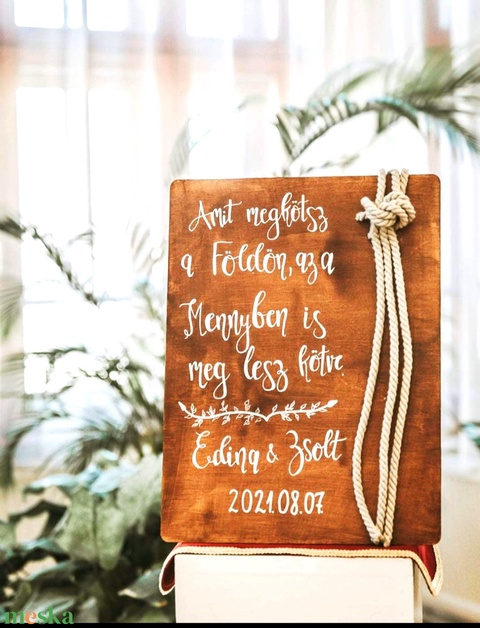 Amit megkötsz
a Földön, az a
Mennyben is
meg lesz kötve
Edina & Zsolt
2021.08.07.
meska